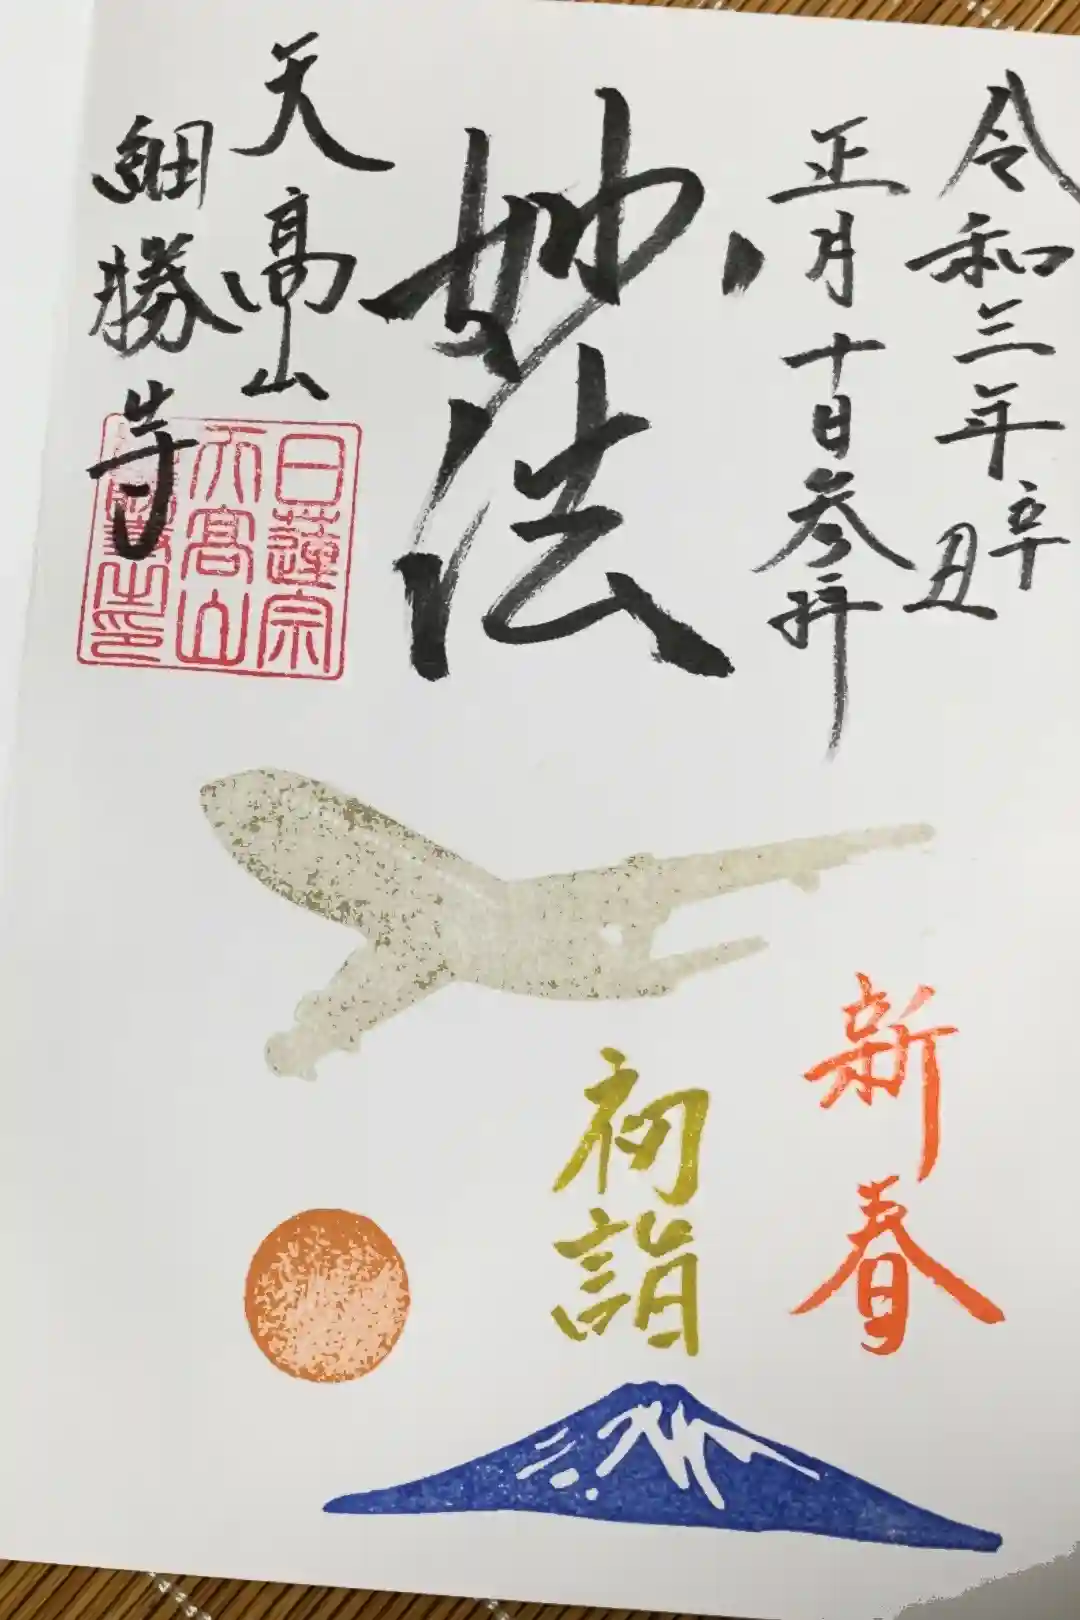 令和三年辛丑
正月十日参拝
妙法
天高山
勝寺
日蓮宗
天高山
新春
初詣